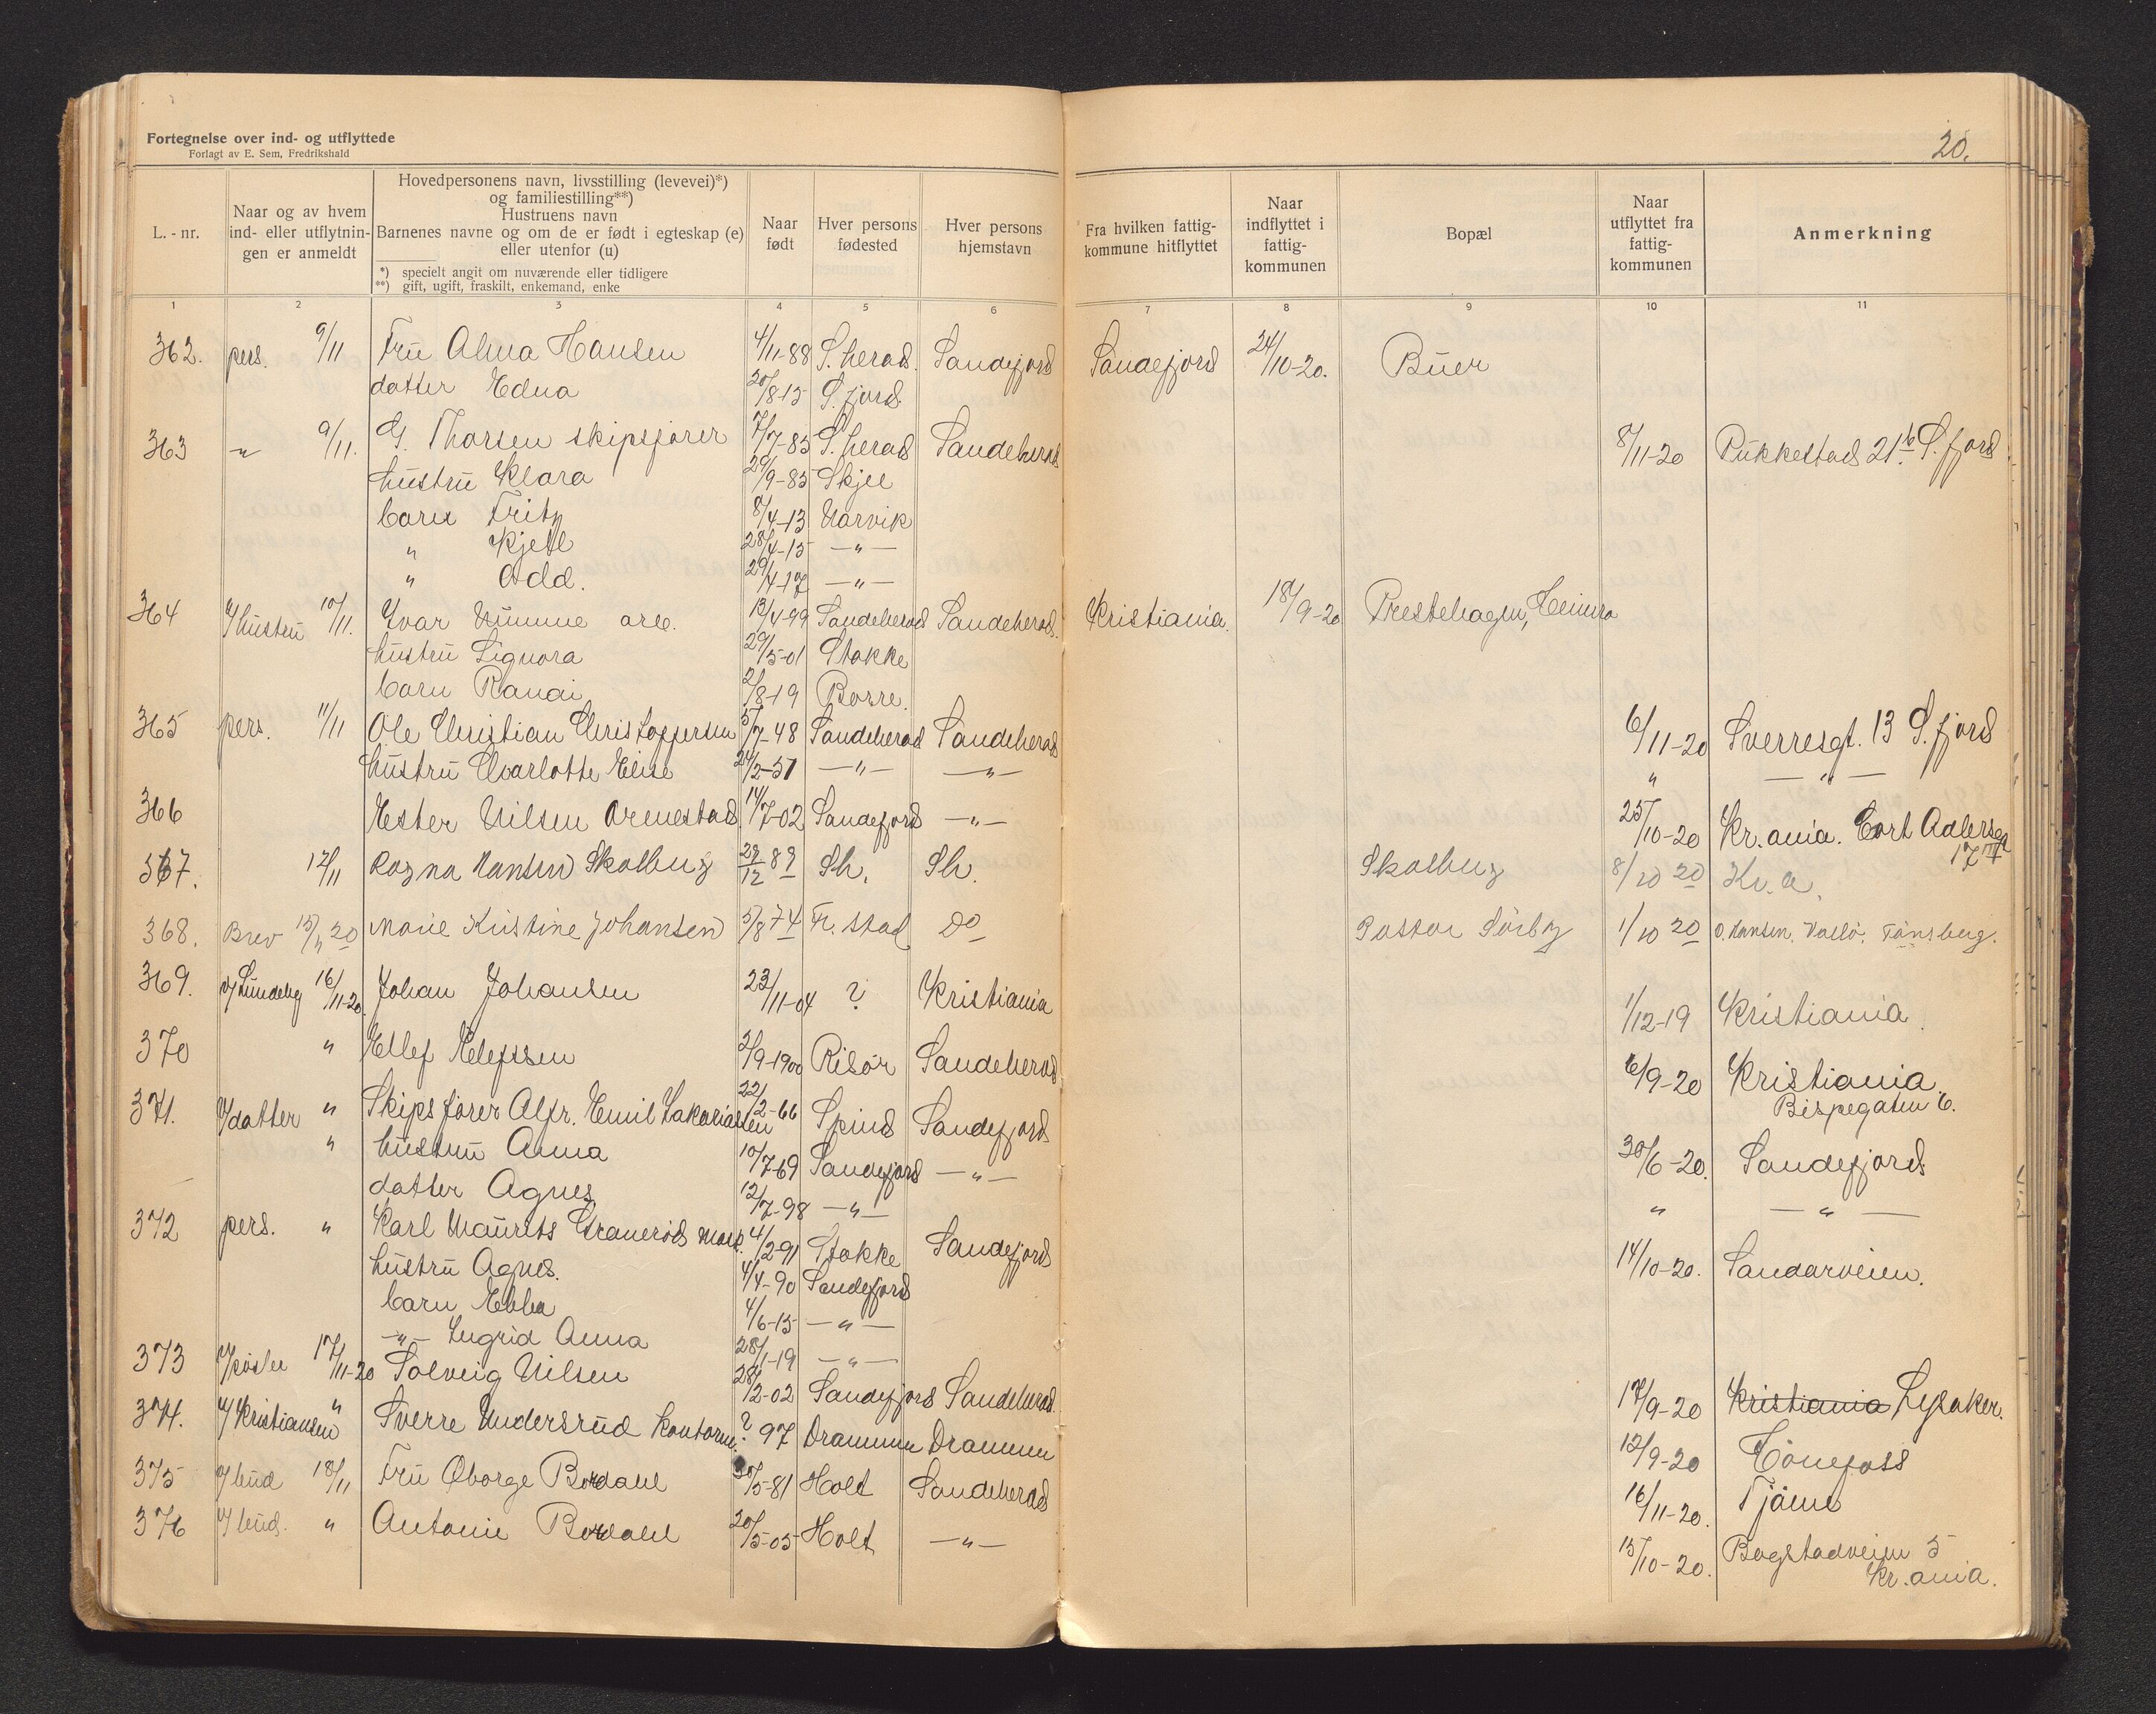 Fortegnelse over ind- og utflyttede
Forlagt av E. Sem, Fredrikshald
20.
L. - nr.
Naar og av hvem ind- eller utflytnin- gen er anmeldt
Hovedpersonens navn, livsstilling (levevei)*)
og familiestilling**)
Hustruens navn
Barnenes navne og om de er født i egteskap (e)
eller utenfor (u)
*) specielt angit om nuværende eller tidligere
**) gift, ugift, fraskilt, enkemand, enke
Naar født
Hver persons fødested
Hver persons hjemstavn
Fra hvilken fattig- kommune hitflyttet
Naar indflyttet i fattig- kommunen
Bopæl
Naar utflyttet fra fattig- kommunen
Anmerkning
1 2 3 4 5 6 7 8 9 10 11
362. pers. 9/11 Fru Alma Hansen 4/11-88 S. herad. Sandefjord Sandefjord 24/10-20. Buer
datter Edna 20/8-15 S. fjord
363 " 9/11. G. Thorsen skipsfører 7/7-83 S. herad Sandeherad 8/11-20 Pukkestad 21b S. fjord
hustru Klara 29/9-83 Skjee
barn Fritz 8/4-13 Narvik
" Kjell 28/4-15 — " —
" Odd. 29/4-17 — " —
364 v/hustru 10/11. Ivar Numme arb. 13/4-99 Sandeherad Sandeherad. Kristiania. 18/9-20 Prestehagen,
hustru Signora 29/5-01 Stokke
barn Randi 2/8-19 Borre.
365 pers. 11/11 Ole Christian Christoffersen 5/7-48 Sandeherad Sandeherad 6/11-20 Sverresgt. 13 S. fjord
hustru Charlotte Elise 24/2-51 — " — — " — " — " —
366 Ester Nilsen Ormestad 14/7-02 Sandefjord — " — 25/10-20 Kr.ania. Cort Adlersgt
17 IV
367. 12/11 Ragna Hansen Skolberg 29/12 89 Sh. Sh. Skolberg 8/10 20 Kr. a.
368. Brev 15/11 20 Marie Kristine Johansen 5/8 74 Fr. stad Do Pastor Sørby 1/10 20 O. Hansen, Vallø, Tønsberg.
369. v/Lundeby 16/11-20. Johan Johansen 23/11-04 ? Kristiania 1/12-19 Kristiania.
370 " Ellef Ellefssen 2/9-1900 Risør Sandeherad 6/9-20 Kristiania
Bispegaten 6.
371. v/datter " Skipsfører Alfr. Emil Zakariassen 22/2-66 Spind Sandefjord 30/6-20. Sandefjord
" hustru Anna 10/7-69 Sandefjord — " — " — " —
datter Agnes 12/7-98 — " —
372 pers. " Karl Maurits Granerød mask. 4/2-91 Stokke Sandefjord 14/10-20. Sandarveien.
hustru Agnes. 4/4-90 Sandefjord
barn Ebba 4/6-15 — " —
— " — Ingrid Anna 28/1-19 — " —
373 17/11-20 Solveig Nilsen 28/12-02 Sandefjord Sandeherad 17/9-20 Kristiania Lysaker.
374. v/Kristiansen " Sverre Undersrud kontorm. ? 97 Drammen Drammen 12/9-20 Hønefoss
375 v/bud 18/11 Fru Oborge Bordahl 30/5-81 Holt Sandeherad 16/11-20. Tjøme
376 v/bud. " Antonie Bordahl 20/5-05 Holt — " — 15/10-20. Bogstadveien 5
Kr.ania.